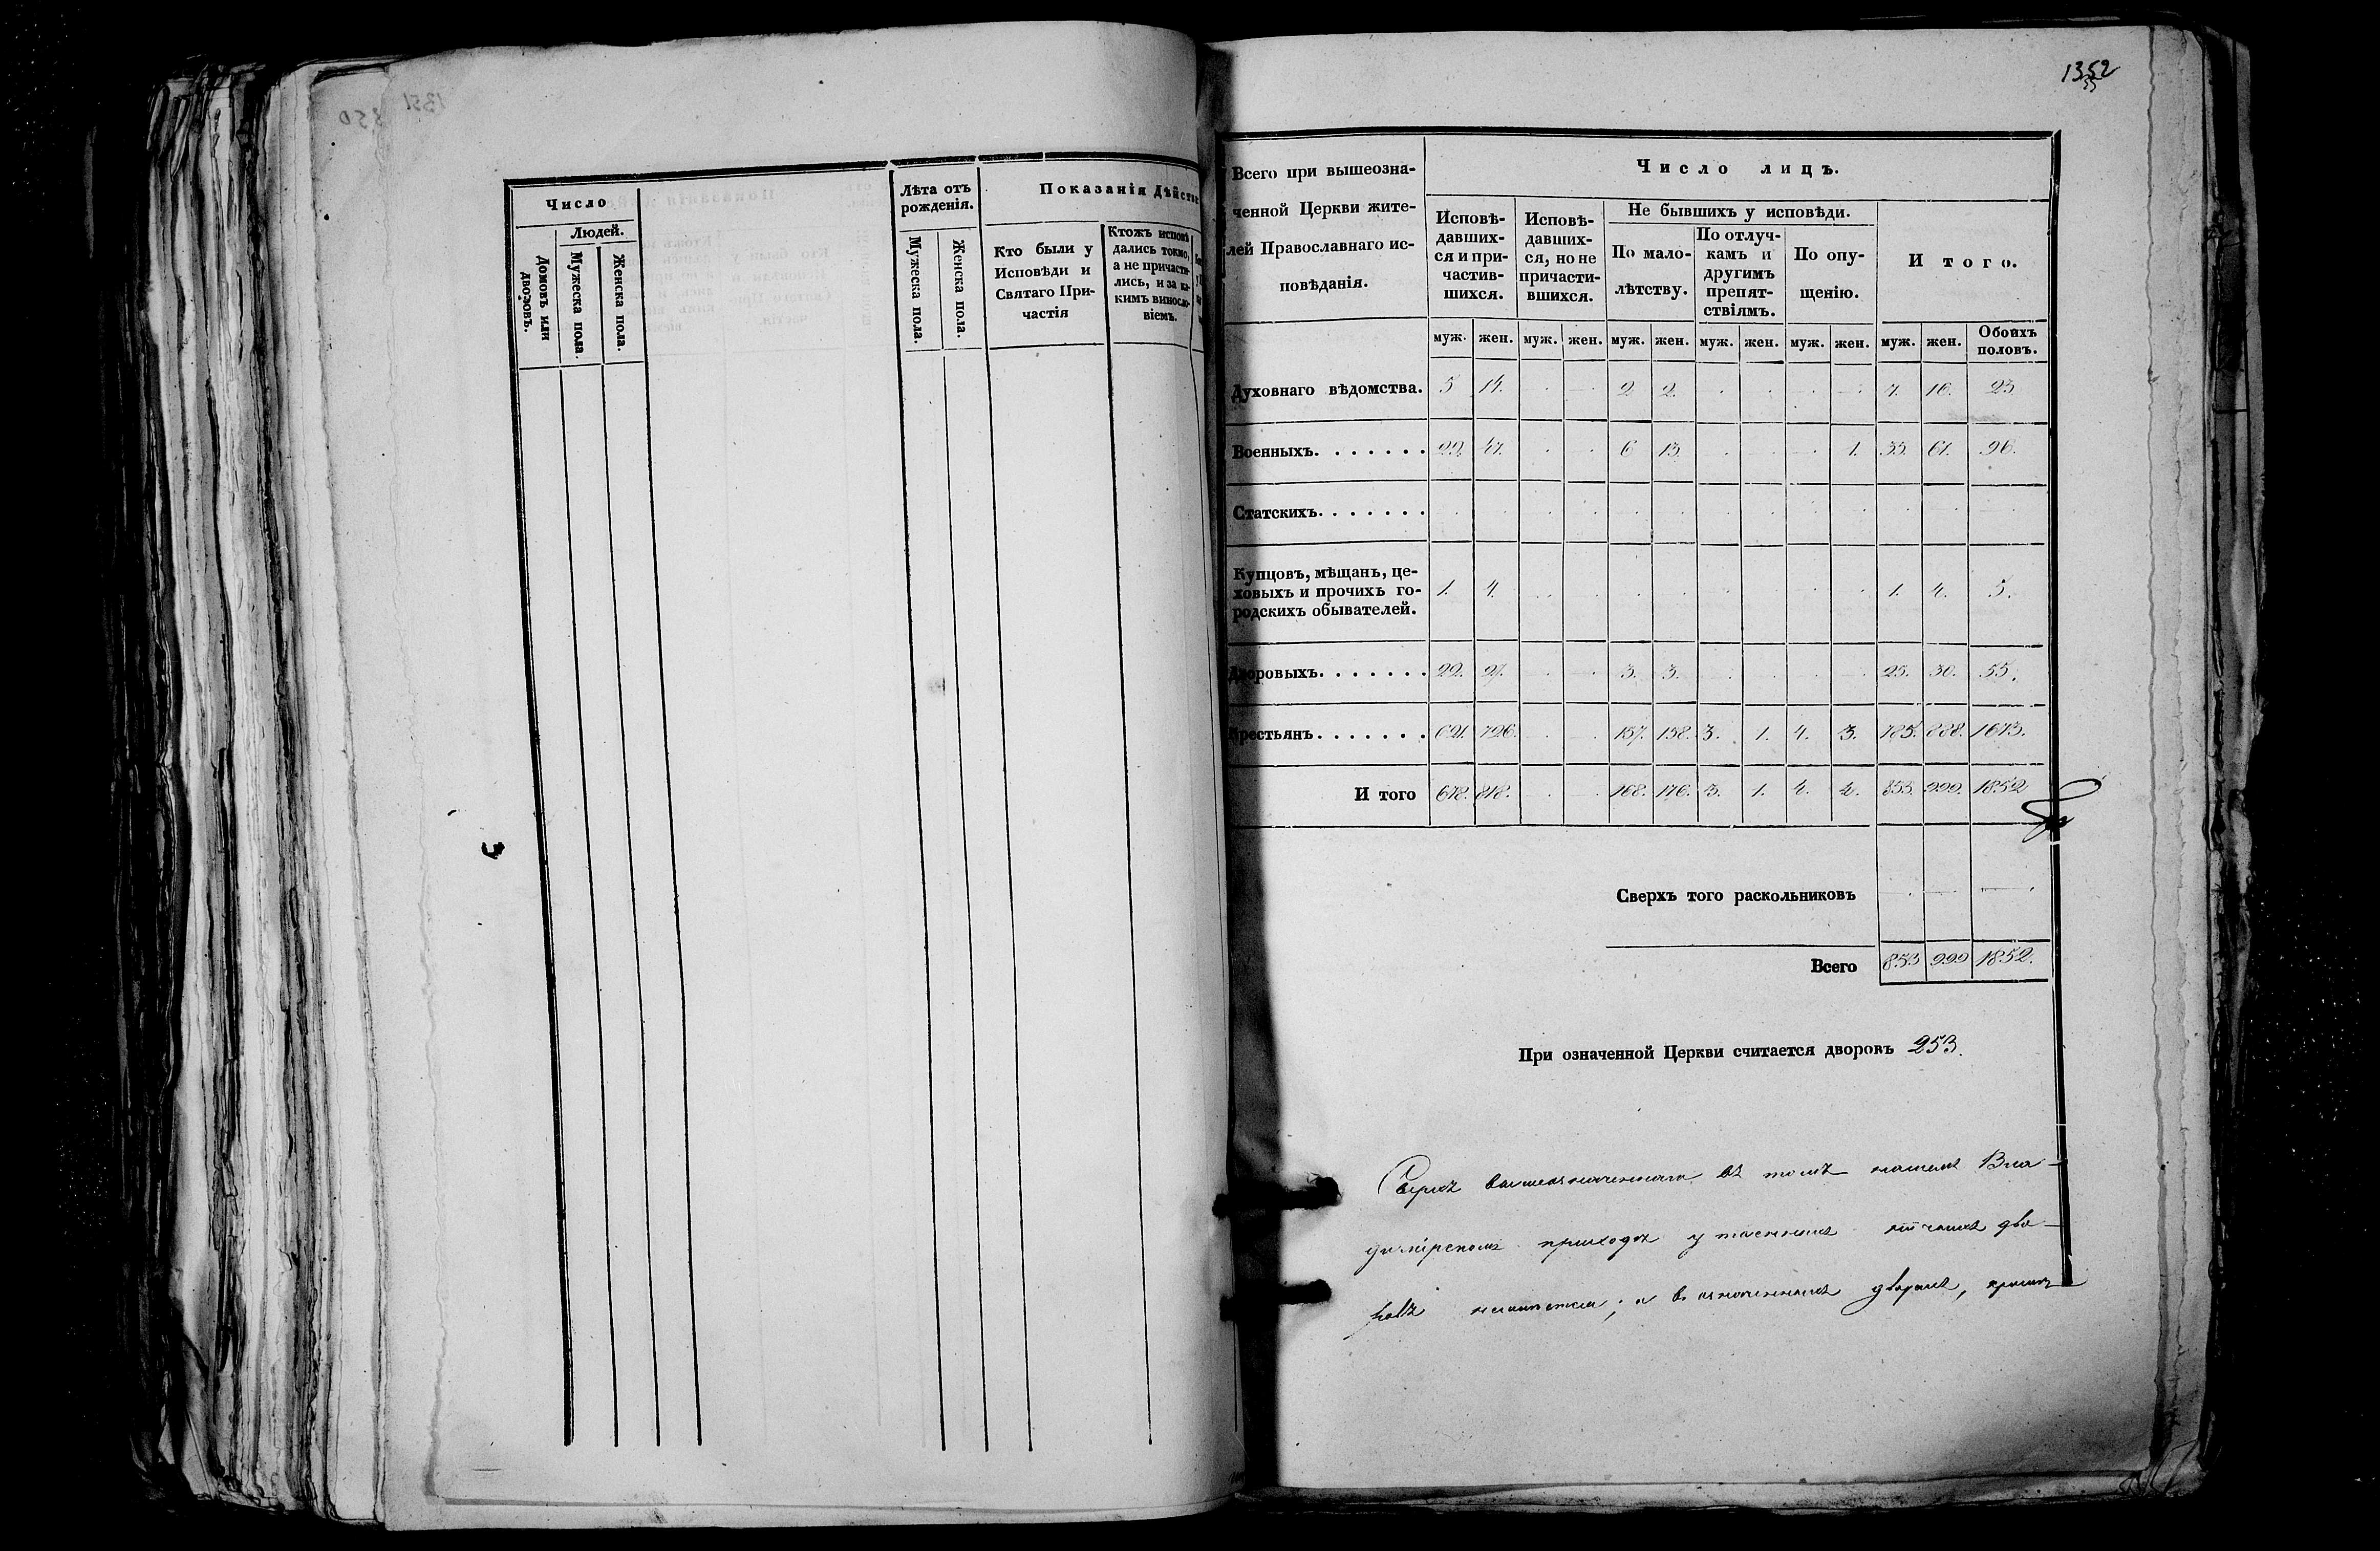 1351
350
Число
Людей.
Домовъ или дворовъ.
Мужеска пола.
Женска пола.
Лѣта отъ рожденія.
Мужеска пола.
Женска пола.
Показанія Дѣйств
Кто были у
Исповѣди и
Святаго При-
частія
Ктожъ исповѣ
дались токмо,
а не причасти-
лись, и за ка-
кимъ винословіемъ.
1352
Всего при вышеозна-
ченной Церкви жите-
лей Православнаго ис-
повѣданія.
Число лицъ.
Исповѣ-
давших-
ся и при-
частив-
шихся.
Исповѣ-
давших-
ся, но не
причасти-
вшихся.
Не бывшихъ у исповѣди.
По мало-
лѣтству.
По отлуч-
камъ и
другимъ
препят-
ствіямъ.
По опу-
щенію.
И того.
муж. жен. муж. жен. муж. жен. муж. жен. муж. жен. муж. жен. Обоихъ половъ.
Духовнаго вѣдомства. 5 14. 2. 2. 7. 16. 23
Военныхъ....... 29. 47. 6 13. 1. 35. 61. 96.
Статскихъ.......
Купцовъ, мѣщанъ, це-
ховыхъ и прочихъ го-
родскихъ обывателей. 1. 4. 1. 4. 5.
Дворовыхъ....... 22. 27. 3. 3. 25. 30. 55.
Крестьянъ....... 621. 726. 157. 158. 3. 1. 4. 3. 785. 888. 1673.
И того 678. 818. 168. 176. 3. 1. 4. 4. 853. 999. 1852
Сверхъ того раскольниковъ
Всего 853 999 1852.
При означенной Церкви считается дворовъ 253.
Сверхъ вышеозначеннаго въ томъ нашемъ Вла-
димірскомъ приходѣ утаенныхъ дво-
ровъ неимѣется; а въ означенныхъ дворахъ, кромѣ